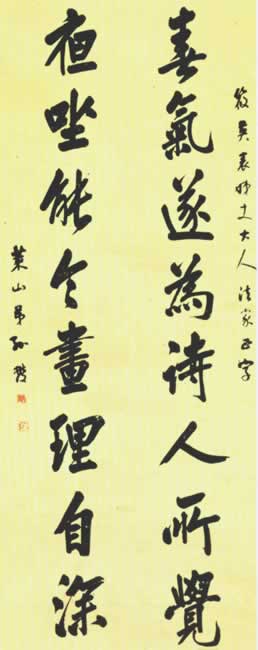 表姊丈大人法家正字
春氣遂為詩人所覺
夜坐能令畫理自深
山弟孫